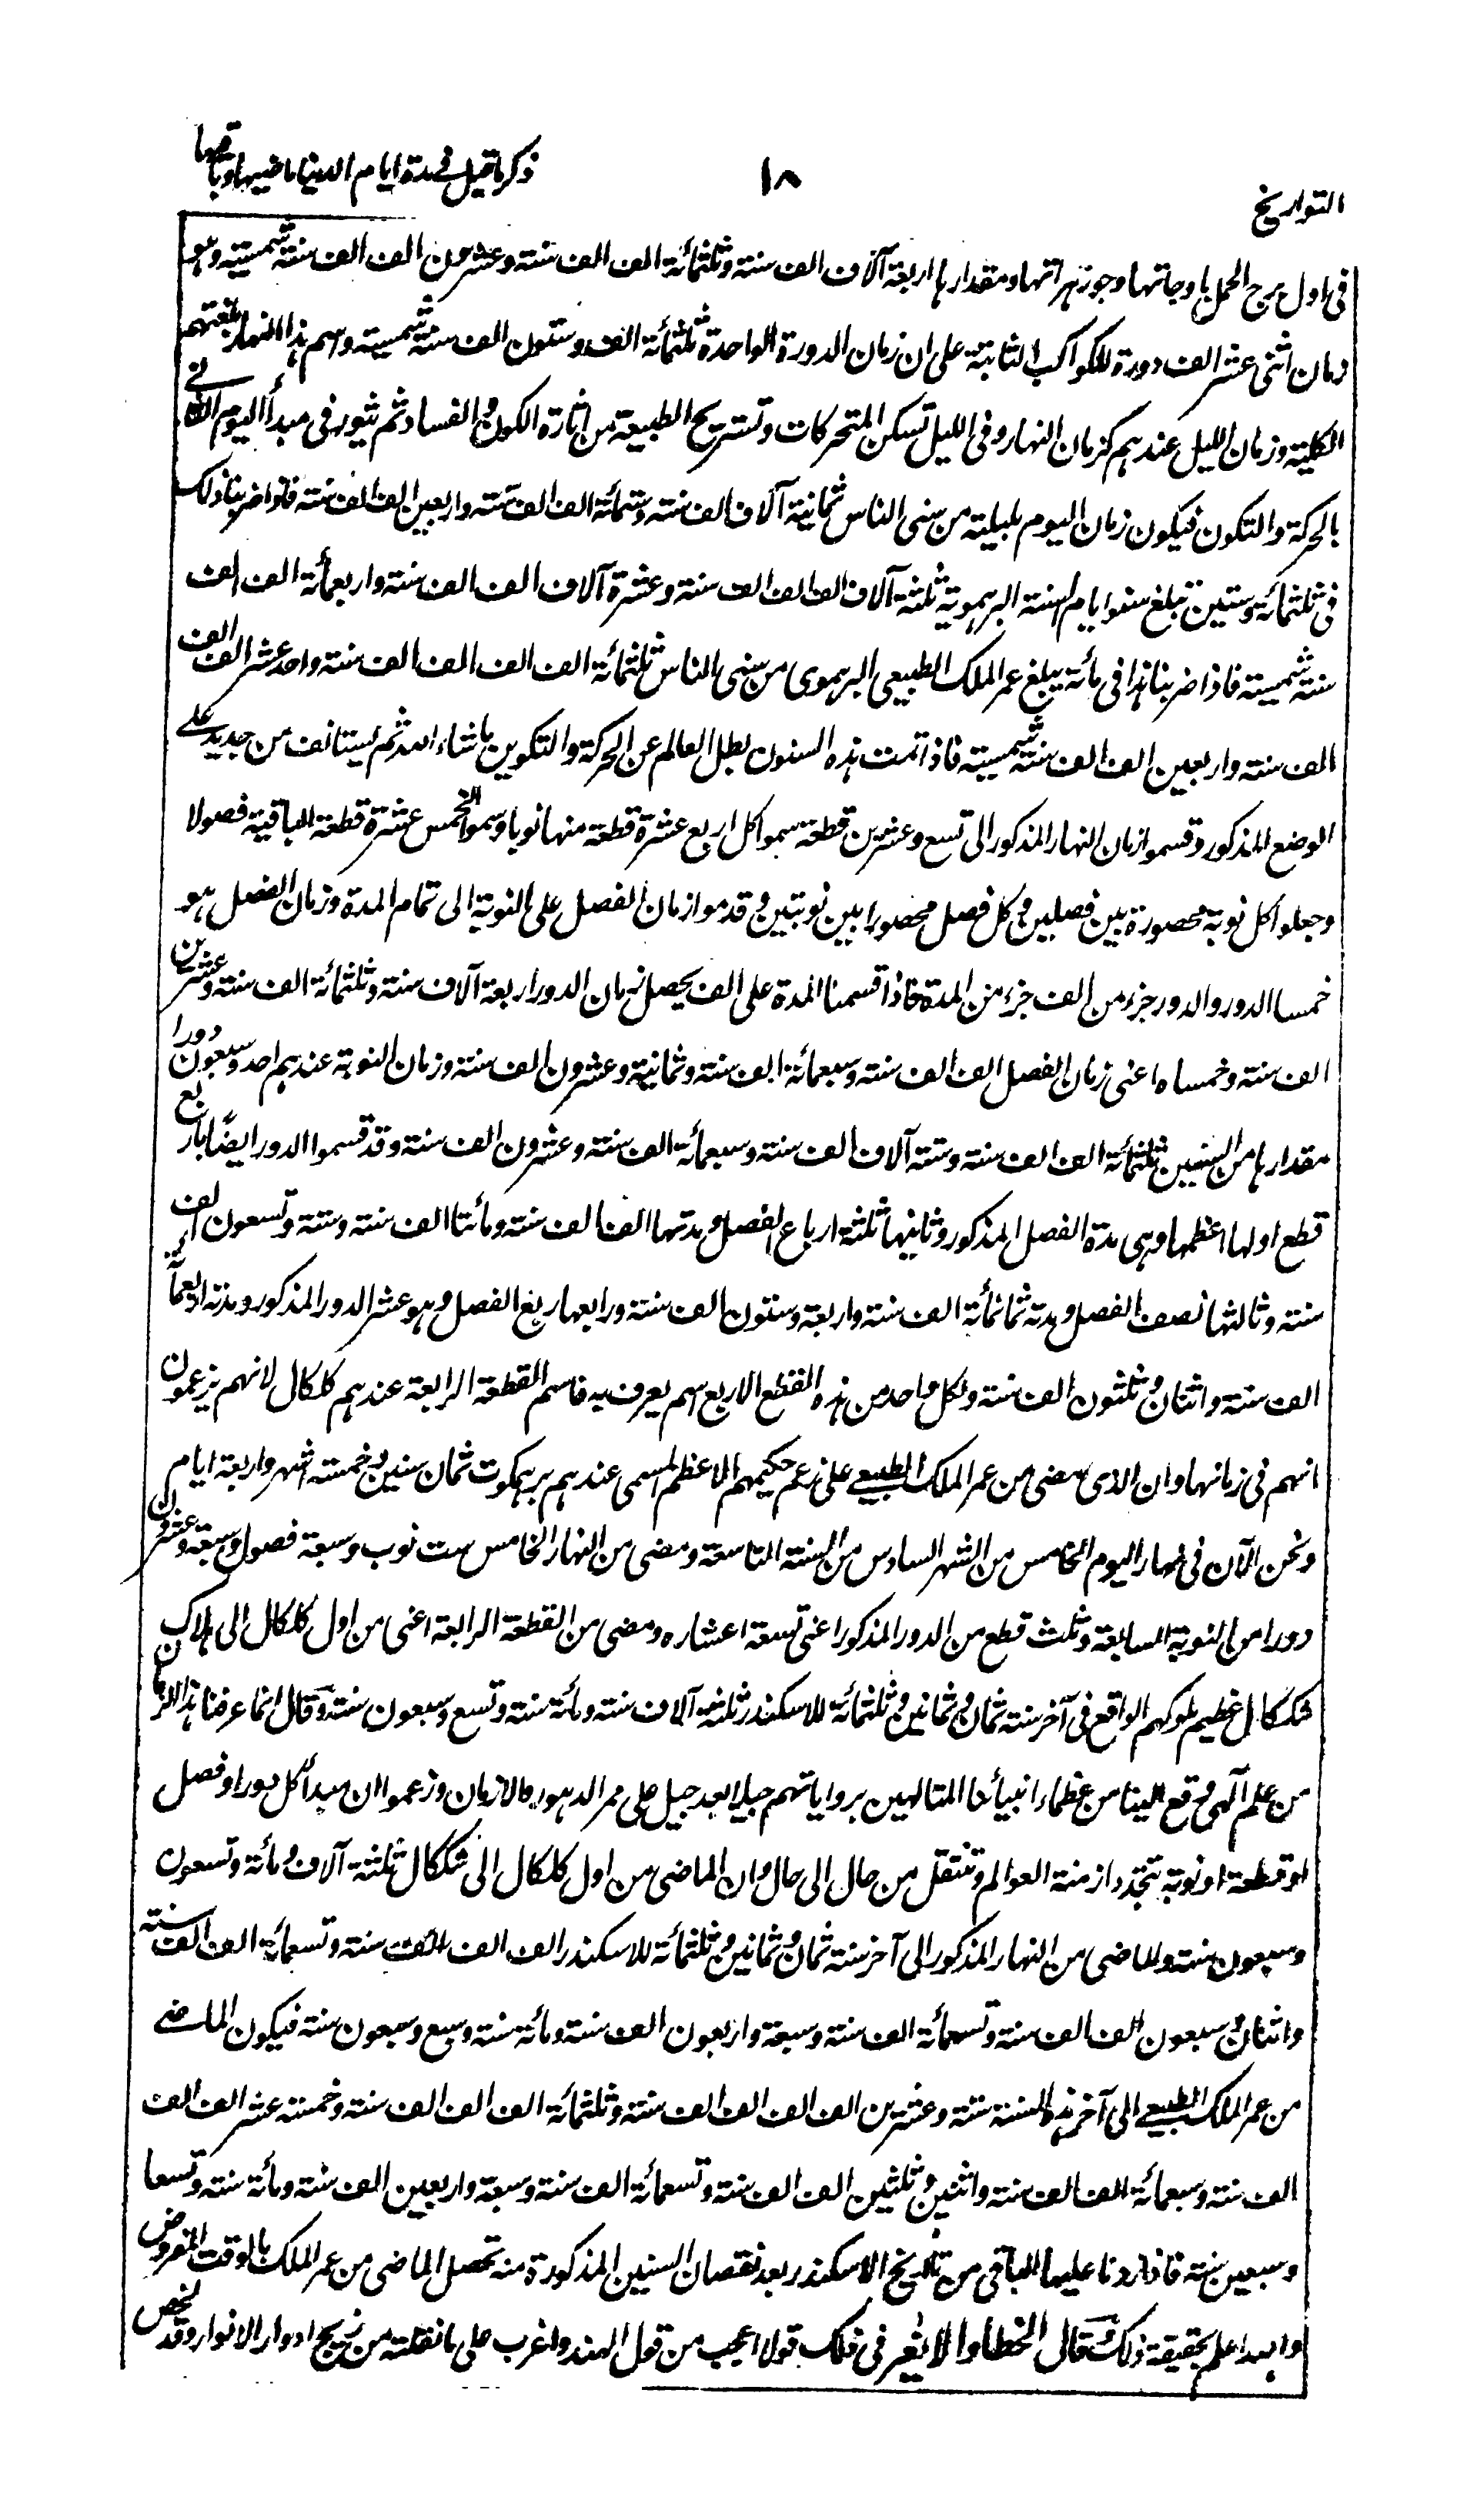 التواريخ
١٨
ذكر ما قيل في مدة ايام الدنيا ماضيها وباقيها
في اول برج الحمل باوجاتها وجوزهراتها ومقدارها اربعة آلاف الف سنة وثلثمائة الف الف سنة وعشرون الف الف سنة شمسية وهو
زمان اثنى عشر الف دورة للكواكب الثابتة على ان زمان الدورة الواحدة ثلثمائة الف وستون الف سنة شمسية واسم هذا النهار بلغتهم
الكلية وزمان الليل عندهم كزمان النهار وفى الليل تسكن المتحركات وتستريح الطبيعة من اثارة الكون والفساد ثم تثور فى مبدأ اليوم الثاني
بالحركة والتكون فيكون زمان اليوم بليلته من سنى الناس ثمانية آلاف الف سنة وستمائة الف الف سنة واربعين الف الف سنة فاذا ضربنا ذلك
فى ثلثمائة وستين تبلغ سنوا ايام السنة البرهموية ثلثة آلاف الف الف الف سنة وعشرة آلاف الف الف سنة واربعمائة الف الف
سنة شمسية فاذا ضربنا هذا فى مائة يبلغ عمر الملك الطبيعى البرهموى من سنى الناس ثلثمائة الف الف الف الف سنة واحد عشر الف الف
الف سنة واربعين الف الف سنة شمسية فاذا تمت هذه السنون بطل العالم عن الحركة والتكوين ما شاء الله ثم يستانف من جديد على
الوضع المذكور وقسموا زمان النهار المذكور الى تسع وعشرين قطعة سموا كل اربع عشرة قطعة منها نوبا وسموا الخمس عشرة قطعة الباقية فصولا
وجعلوا كل نوبة محصورة بين فصلين وكل فصل محصورا بين نوبتين وقدموا زمان الفصل على النوبة الى تمام المدة وزمان الفصل هو
خمسا الدور والدور جزء من الف جزء من المدة فاذا قسمنا المدة على الف يحصل زمان الدور اربعة آلاف سنة وثلثمائة الف سنة وعشرين
الف سنة وخمساه اعنى زمان الفصل الف الف سنة وسبعمائة الف سنة وثمانية وعشرون الف سنة وزمان النوبة عندهم احد وسبعون دورا
مقدارها من السنين ثلثمائة الف الف سنة وستة آلاف الف سنة وسبعمائة الف سنة وعشرون الف سنة وقد قسموا الدور ايضًا باربع
قطع اولها اعظمها وهى مدة الفصل المذكور وثانيها ثلثة ارباع الفصل ومدتها الف الف سنة ومائتا الف سنة وستة وتسعون الف
سنة وثالثها نصف الفصل ومدته ثمانمائة الف سنة واربعة وستون الف سنة ورابعها ربع الفصل وهو عشر الدور المذكور ومدته اربعمائة
الف سنة واثنان وثلثون الف سنة ولكل واحد من هذه القطع الاربع اسم يعرف به فاسم القطعة الرابعة عندهم كلكال لانهم يزعمون
انهم فى زمانها وان الذى مضى من عمر الملك الطبيعى على زعم حكيمهم الاعظم المسمى عندهم برهمكوت ثمان سنين وخمسة اشهر واربعة ايام
ونحن الآن فى نهار اليوم الخامس من الشهر السادس من السنة التاسعة ومضى من النهار الخامس ست نوب وسبعة فصول وسبعة وعشرون
دورا من النوبة السابعة وثلث قطع من الدور المذكور اعنى تسعة اعشاره ومضى من القطعة الرابعة اعنى من اول كلكال الى هلاك
شككال عظيم ملوكهم الواقع فى آخر سنة ثمان وثمانين وثلثمائة للاسكندر ثلثة آلاف سنة ومائة سنة وتسع وسبعون سنة وقال انما عرفنا هذا الزمان
من علم آلهى وقع الينا من عظماء انبيائنا المتالهين برواياتهم جيلا بعد جيل على ممر الدهور والازمان وزعموا ان مبدأ كل دور او فصل
او قطعة او نوبة تتجدد ازمنة العوالم وتنتقل من حال الى حال وان الماضى من اول كلكال الى شككال ثلثة آلاف ومائة وتسعون
وسبعون سنة والماضى من النهار المذكور الى آخر سنة ثمان وثمانين وثلثمائة للاسكندر الف الف الف سنة وتسعمائة الف الف سنة
واثنان وسبعون الف الف سنة وتسعمائة الف سنة وسبعة واربعون الف سنة ومائة سنة وسبع وسبعون سنة فيكون الماضى
من عمر الملك الطبيعى الى آخر هذه السنة ستة وعشرين الف الف الف الف سنة وثلثمائة الف الف الف سنة وخمسة عشر الف الف
الف سنة وسبعمائة الف الف سنة واثنين وثلثين الف الف سنة وتسعمائة الف سنة وسبعة واربعين الف سنة ومائة سنة وتسعا
وسبعين سنة فاذا زدنا عليها الباقى من تاريخ الاسكندر بعد نقصان السنين المذكورة منه تحصل الماضى من عمر الملك بالوقت المفروض
والله اعلم بحقيقة ذلك وقال الخطا والايغر فى ذلك قولا اعجب من قول الهند واغرب على ما نقلته من زيج ادوار الانوار وقد لخص